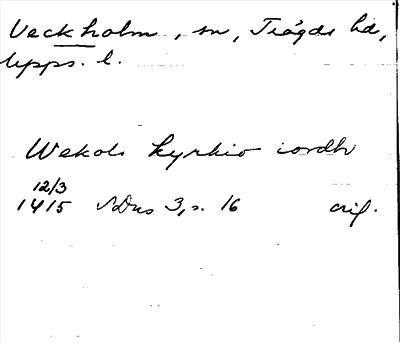 Veckholm, sn, Trögds hd,
Upps. l.
Wekols kyrkio iordh
12/3
1415 SDns 3, s. 16 orig.